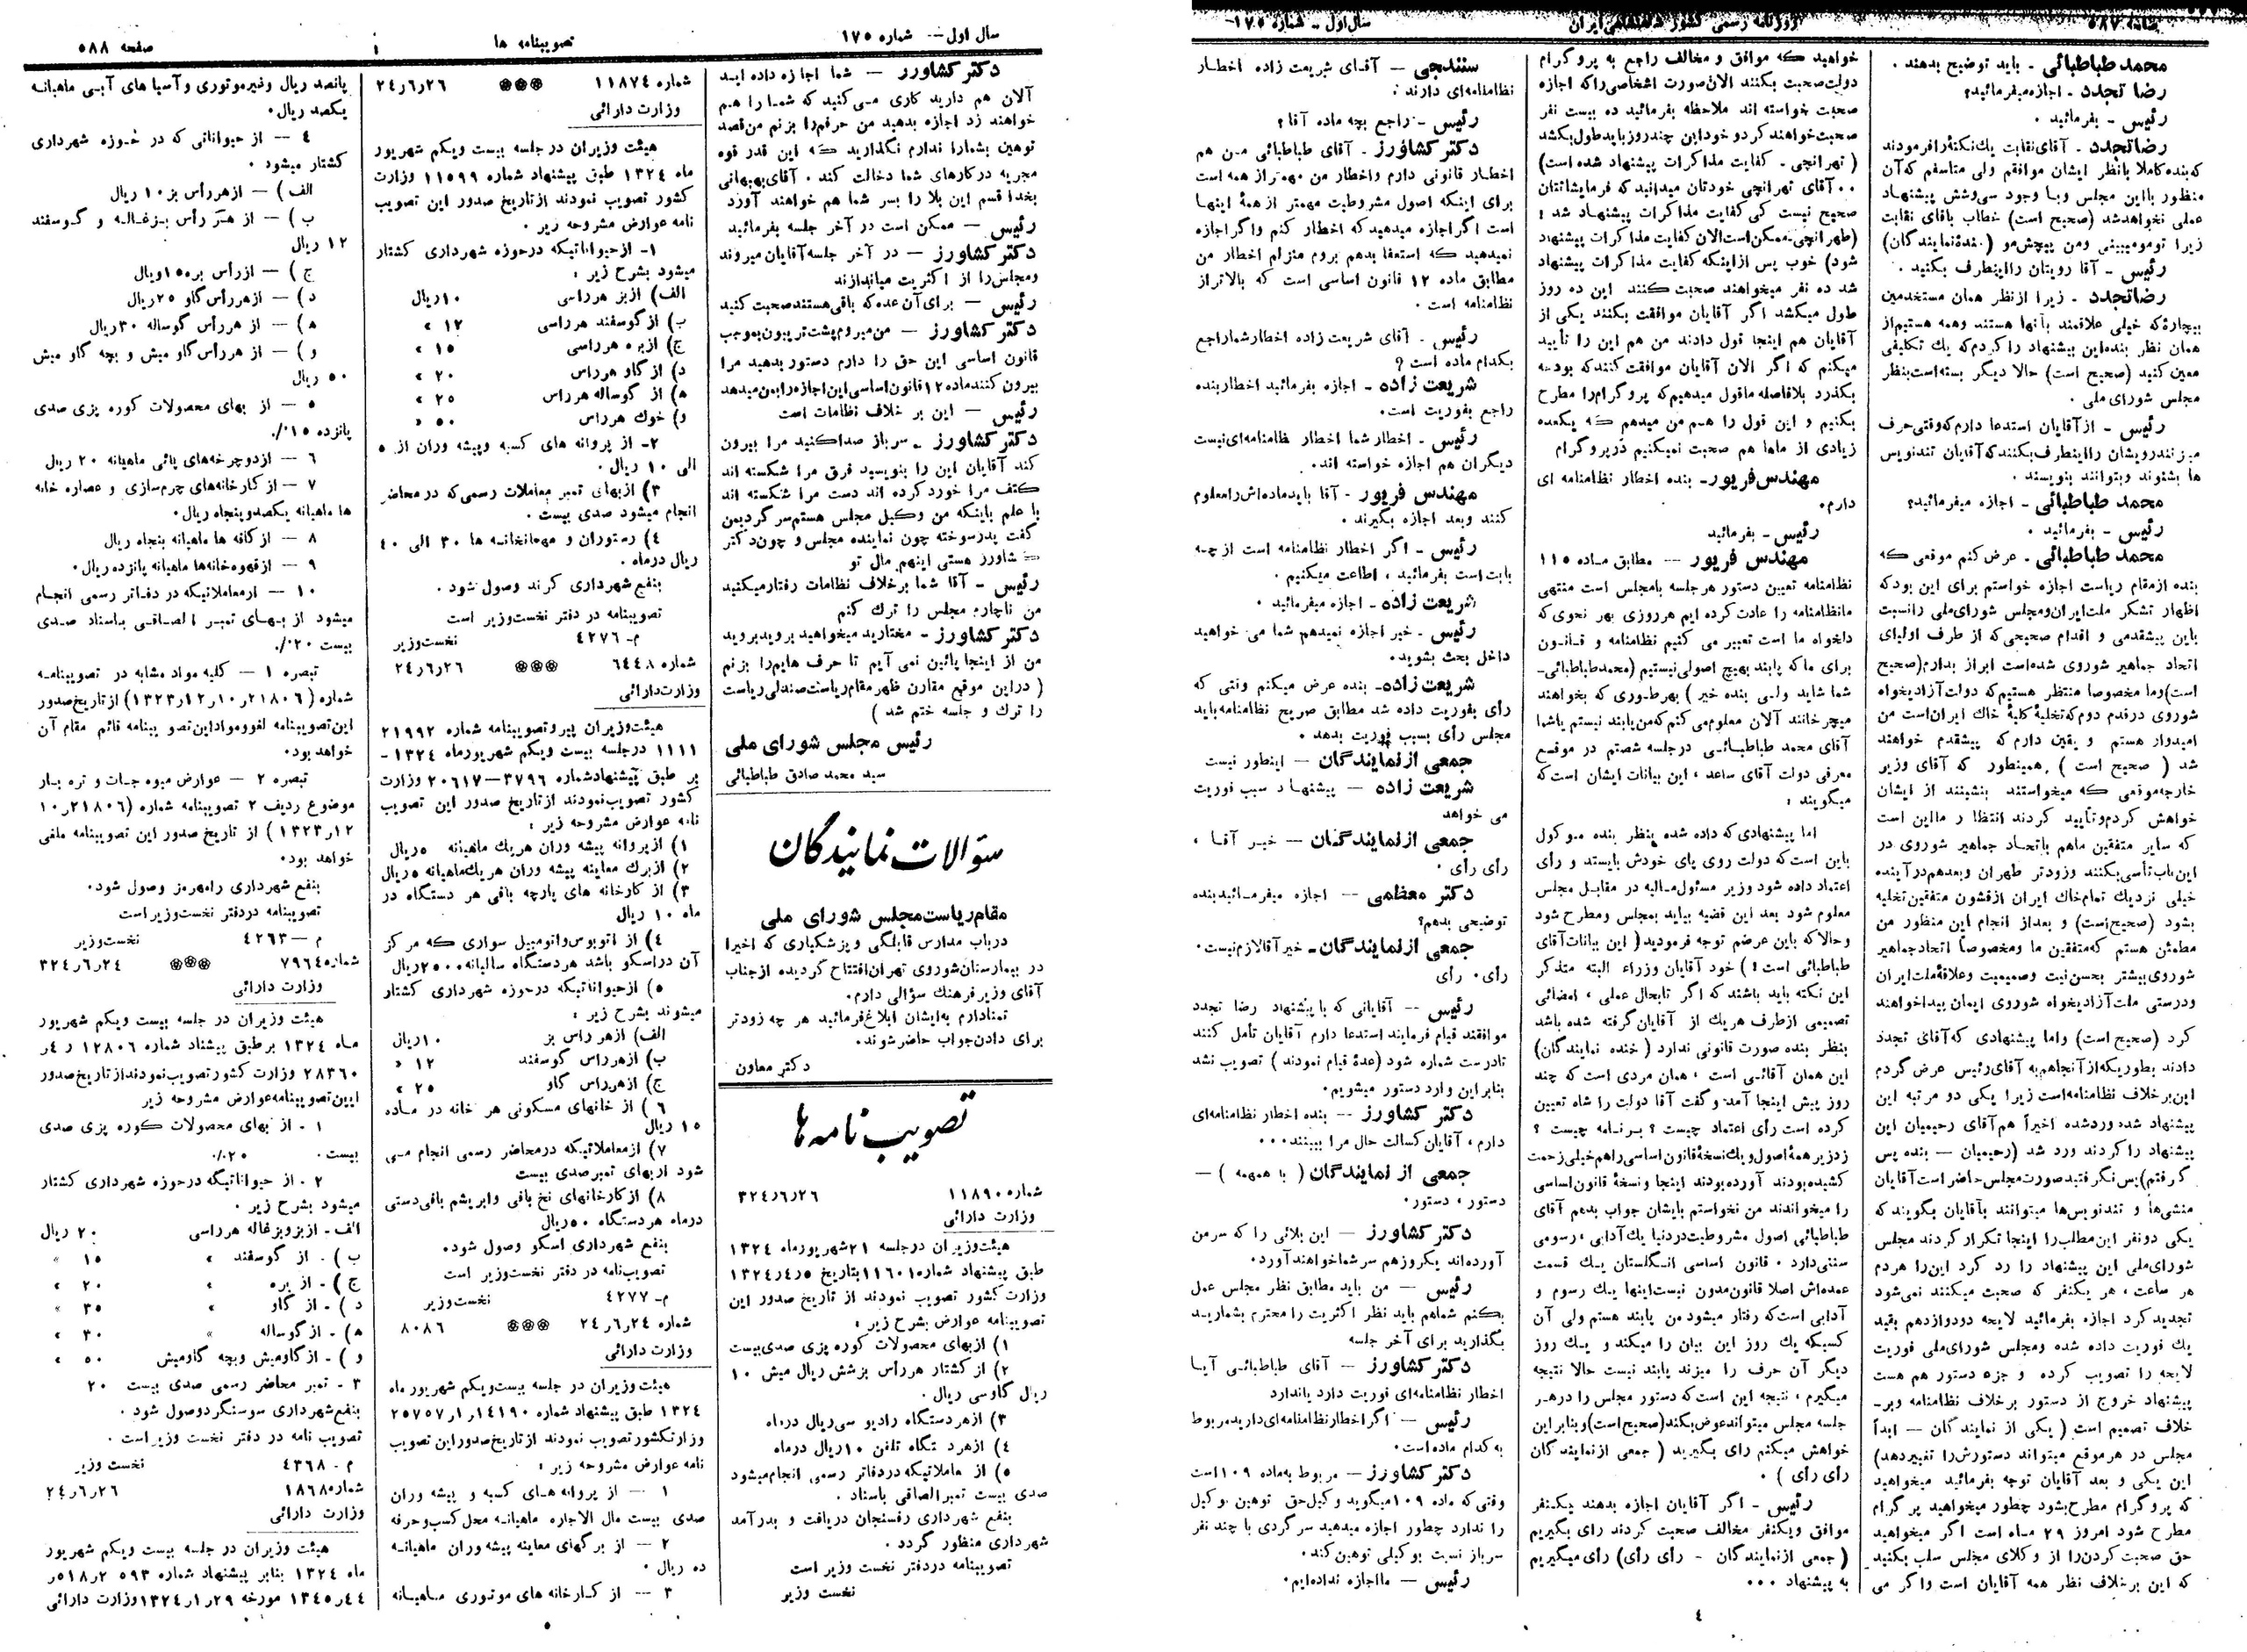 صفحه ۵۸۷
روزنامه رسمی کشور شاهنشاهی ایران
سال اول - شماره ۱۷۵
محمد طباطبائی - باید توضیح بدهند .
رضا تجدد - اجازه میفرمائید؟
رئیس - بفرمائید .
رضا تجدد - آقای نقابت یك نکتهٔ را فرمودند
که بنده کاملا بانظر ایشان موافقم ولی متاسفم که آن
منظور بااین مجلس وبا وجود سی و شش پیشنهاد
عملی نخواهد شد (صحیح است) خطاب باقای نقابت
زیرا تو مو میبینی ومن پیچش مو (خندهٔ نمایندگان)
رئیس - آقا رویتان رااینطرف بکنید .
رضا تجدد - زیرا از نظر همان مستخدمین
بیچاره که خیلی علاقمند بآنها هستند وهمه هستیم از
همان نظر بنده این پیشنهاد را کردم که یك تکلیفی
معین کنید (صحیح است) حالا دیگر بسته است بنظر
مجلس شورای ملی .
رئیس - ازآقایان استدعا دارم که وقتی حرف
میزنند رویشان رااینطرف بکنند که آقایان تندنویس
ها بشنوند وبتوانند بنویسند .
محمد طباطبائی - اجازه میفرمائید؟
رئیس - بفرمائید .
محمد طباطبائی - عرض کنم موقعی که
بنده ازمقام ریاست اجازه خواستم برای این بود که
اظهار تشکر ملت ایران ومجلس شورای ملی را نسبت
باین پیشقدمی و اقدام صحیحی که از طرف اولیای
اتحاد جماهیر شوروی شده است ابراز بدارم (صحیح
است) وما مخصوصا منتظر هستیم که دولت آزادیخواه
شوروی در قدم دوم که تخلیهٔ کلیهٔ خاك ایران است من
امیدوار هستم و یقین دارم که پیشقدم خواهند
شد ( صحیح است ) همینطور که آقای وزیر
خارجه موقعی که میخواستند بنشینند از ایشان
خواهش کردم و تأیید کردند انتظار ما این است
که سایر متفقین ماهم باتحاد جماهیر شوروی در
این باب تأسی بکنند وزودتر طهران وبعد هم در آینده
خیلی نزدیك تمام خاك ایران ازقشون متفقین تخلیه
بشود (صحیح است) و بعد از انجام این منظور من
مطمئن هستم که متفقین ما ومخصوصاً اتحاد جماهیر
شوروی بیشتر بحسن نیت وصمیمیت وعلاقهٔ ملت ایران
ودرستی ملت آزادیخواه شوروی ایمان پیدا خواهند
کرد (صحیح است) واما پیشنهادی که آقای تجدد
دادند بطوریکه از آنجا هم به آقای رئیس عرض کردم
این بر خلاف نظامنامه است زیرا یکی دو مرتبه این
پیشنهاد شده وردشده اخیراً هم آقای رحیمیان این
پیشنهاد را کردند ورد شد (رحیمیان — بنده پس
گرفتم) پس نگرفتید صورت مجلس حاضر است آقایان
منشی ها و تندنویس ها میتوانند بآقایان بگویند که
یکی دونفر این مطلب را اینجا تکرار کردند مجلس
شورای ملی این پیشنهاد را رد کرد این را هردم
هر ساعت ، هر یکنفر که صحبت میکنند نمی شود
تجدید کرد اجازه بفرمائید لایحه دودوازدهم بقید
یك فوریت داده شده ومجلس شورای ملی فوریت
لایحه را تصویب کرده و جزء دستور هم هست
پیشنهاد خروج از دستور بر خلاف نظامنامه وبر -
خلاف تصمیم است ( یکی از نمایندگان — ابداً
مجلس در هرموقع میتواند دستورش را تغییر دهد)
این یکی و بعد آقایان توجه بفرمائید میخواهید
که پروگرام مطرح بشود چطور میخواهید پرگرام
مطرح شود امروز ۲۹ ماه است اگر میخواهید
حق صحبت کردن را از وکلای مجلس سلب بکنید
که این بر خلاف نظر همه آقایان است واگر می
خواهید که موافق و مخالف راجع به پروگرام
دولت صحبت بکنند الان صورت اشخاصی را که اجازه
صحبت خواسته اند ملاحظه بفرمائید ده بیست نفر
صحبت خواهند کرد و خود این چند روز باید طول بکشد
( تهرانچی - کفایت مذاکرات پیشنهاد شده است)
۰۰ آقای تهرانچی خودتان میدانید که فرمایشاتتان
صحیح نیست کی کفایت مذاکرات پیشنهاد شد !
(طهرانچی - ممکن است الان کفایت مذاکرات پیشنهاد
شود) خوب پس ازاینکه کفایت مذاکرات پیشنهاد
شد ده نفر میخواهند صحبت کنند این ده روز
طول میکشد اگر آقایان موافقت بکنند یکی از
آقایان هم اینجا قول دادند من هم این را تأیید
میکنم که اگر الان آقایان موافقت کنند که بودجه
بگذرد بلافاصله ماقول میدهیم که پروگرام را مطرح
بکنیم و این قول را هم من میدهم که یکعده
زیادی از ماها هم صحبت نمیکنیم درپروگرام
مهندس فریور - بنده اخطار نظامنامه ای
دارم.
رئیس - بفرمائید
مهندس فریور — مطابق ماده ۱۱۵
نظامنامه تعیین دستور هرجلسه بامجلس است منتهی
مانظامنامه را عادت کرده ایم هرروزی بهر نحوی که
دلخواه ما است تعبیر می کنیم نظامنامه و قانون
برای ماکه پابند بهیچ اصولی نیستیم (محمد طباطبائی-
شما شاید ولی بنده خیر ) بهر طوری که بخواهند
میچرخانند آلان معلوم می کنم که من پابند نیستم یا شما
آقای محمد طباطبائی درجلسه شصتم در موقع
معرفی دولت آقای ساعد ، این بیانات ایشان است که
میگویند :
اما پیشنهادی که داده شده بنظر بنده موکول
باین است که دولت روی پای خودش بایستد و رأی
اعتماد داده شود وزیر مسئول مالیه در مقابل مجلس
معلوم شود بعد این قضیه بیاید بمجلس ومطرح شود
وحالا که باین عرضم توجه فرمودید ( این بیانات آقای
طباطبائی است !) خود آقایان وزراء البته متذکر
این نکته باید باشند که اگر تابحال عملی ، امضائی
تصمیمی ازطرف هریك از آقایان گرفته شده باشد
بنظر بنده صورت قانونی ندارد ( خنده نمایندگان)
این همان آقائی است ، همان مردی است که چند
روز پیش اینجا آمد و گفت آقا دولت را شاه تعیین
کرده است رأی اعتماد چیست ؟ برنامه چیست ؟
زدزیر همهٔ اصول ویك نسخهٔ قانون اساسی را هم خیلی زحمت
کشیده بودند آورده بودند اینجا و نسخهٔ قانون اساسی
را میخواندند من نخواستم بایشان جواب بدهم آقای
طباطبائی اصول مشروطیت دردنیا یك آدابی ، رسومی
سننی دارد . قانون اساسی انگلستان یك قسمت
عمده اش اصلا قانون مدون نیست اینها یك رسوم و
آدابی است که رفتار میشود من پابند هستم ولی آن
کسیکه یك روز این بیان را میکند و یك روز
دیگر آن حرف را میزند پابند نیست حالا نتیجه
میگیرم ، نتیجه این است که دستور مجلس را درهر
جلسه مجلس میتواند عوض بکند (صحیح است) وبنابراین
خواهش میکنم رای بگیرید ( جمعی از نمایندگان
رأی رأی ) .
رئیس - اگر آقایان اجازه بدهند یکنفر
موافق ویکنفر مخالف صحبت کردند رای بگیریم
( جمعی از نمایندگان - رأی رأی) رأی میگیریم
به پیشنهاد ۰۰۰
سنندجی — آقای شریعت زاده اخطار
نظامنامه ای دارند .
رئیس - راجع بچه ماده آقا ؟
دکتر کشاورز - آقای طباطبائی من هم
اخطار قانونی دارم واخطار من مهمتر از همه است
برای اینکه اصول مشروطیت مهمتر ازهمهٔ اینها
است اگر اجازه میدهید که اخطار کنم واگر اجازه
نمیدهید که استعفا بدهم بروم منزلم اخطار من
مطابق ماده ۱۲ قانون اساسی است که بالاتراز
نظامنامه است .
رئیس - آقای شریعت زاده اخطار شما راجع
بکدام ماده است ؟
شریعت زاده - اجازه بفرمائید اخطار بنده
راجع بفوریت است.
رئیس - اخطار شما اخطار نظامنامه ای نیست
دیگران هم اجازه خواسته اند.
مهندس فریور - آقا باید ماده اش را معلوم
کنند وبعد اجازه بگیرند .
رئیس - اگر اخطار نظامنامه است از چه
بابت است بفرمائید ، اطاعت میکنیم .
شریعت زاده - اجازه میفرمائید .
رئیس - خیر اجازه نمیدهم شما می خواهید
داخل بحث بشوید.
شریعت زاده - بنده عرض میکنم وقتی که
رأی بفوریت داده شد مطابق صریح نظامنامه باید
مجلس رأی بسبب فوریت بدهد .
جمعی از نمایندگان — اینطور نیست
شریعت زاده — پیشنهاد سبب فوریت
می خواهد
جمعی از نمایندگان — خیر آقا ،
رأی رأی .
دکتر معظمی — اجازه میفرمائید بنده
توضیحی بدهم؟
جمعی از نمایندگان - خیر آقا لازم نیست.
رأی . رأی
رئیس — آقایانی که با پیشنهاد رضا تجدد
موافقند قیام فرمایند استدعا دارم آقایان تأمل کنند
تادرست شماره شود (عدهٔ قیام نمودند ) تصویب نشد
بنابر این وارد دستور میشویم.
دکتر کشاورز — بنده اخطار نظامنامه ای
دارم ، آقایان کسالت حال مرا ببینند . . .
جمعی از نمایندگان ( با همهمه ) —
دستور ، دستور.
دکتر کشاورز — این بلائی را که سر من
آورده اند یکروز هم سر شما خواهند آورد.
رئیس — من باید مطابق نظر مجلس عمل
بکنم شما هم باید نظر اکثریت را محترم بشمارید
بگذارید برای آخر جلسه
دکتر کشاورز — آقای طباطبائی آیا
اخطار نظامنامه ای فوریت دارد یاندارد
رئیس — اگر اخطار نظامنامه ای دارید مربوط
به کدام ماده است.
دکتر کشاورز — مربوط به ماده ۱۰۹ است
وقتی که ماده ۱۰۹ میگوید وکیل حق توهین بوکیل
را ندارد چطور اجازه میدهید سرگردی با چند نفر
سرباز نسبت بوکیلی توهین کند.
رئیس — ما اجازه نداده ایم.
٤
سال اول — شماره ۱۷۵
تصویبنامه ها
صفحه ۵۸۸
دکتر کشاورز — شما اجازه داده اید
آلان هم دارید کاری می کنید که شما را هم
خواهند زد اجازه بدهید من حرفم را بزنم من قصد
توهین بشما را ندارم نگذارید که این قدر قوه
مجریه درکارهای شما دخالت کند . آقای بهبهانی
بخدا قسم این بلا را بسر شما هم خواهند آورد
رئیس — ممکن است در آخر جلسه بفرمائید
دکتر کشاورز — در آخر جلسه آقایان میروند
ومجلس را از اکثریت میاندازند
رئیس — برای آن عده که باقی هستند صحبت کنید
دکتر کشاورز — من میروم پشت تریبون بموجب
قانون اساسی این حق را دارم دستور بدهید مرا
بیرون کنند ماده ۱۲ قانون اساسی این اجازه را بمن میدهد
رئیس — این بر خلاف نظامات است
دکتر کشاورز - سرباز صدا کنید مرا بیرون
کند آقایان این را بنویسید فرق مرا شکسته اند
کتف مرا خورد کرده اند دست مرا شکسته اند
با علم باینکه من وکیل مجلس هستم سرگرد بمن
گفت پدر سوخته چون نماینده مجلس و چون دکتر
کشاورز هستی اینهم مال تو
رئیس - آقا شما بر خلاف نظامات رفتار میکنید
من ناچارم مجلس را ترك کنم
دکتر کشاورز - مختارید میخواهید بروید بروید
من از اینجا پائین نمی آیم تا حرف هایم را بزنم
( دراین موقع مقارن ظهر مقام ریاست صندلی ریاست
را ترك و جلسه ختم شد )
رئیس مجلس شورای ملی
سید محمد صادق طباطبائی
سؤالات نمایندگان
مقام ریاست مجلس شورای ملی
درباب مدارس قابلگی و پزشکیاری که اخیرا
در بیمارستان شوروی تهران افتتاح گردیده از جناب
آقای وزیر فرهنك سؤالی دارم.
تمنا دارم به ایشان ابلاغ فرمائید هر چه زودتر
برای دادن جواب حاضر شوند.
دکتر معاون
تصویب نامه ها
شماره ۱۱۸۹۰ ۲۴ر۶ر۲۶
وزارت دارائی
هیئت وزیران درجلسه ۲۱ شهریور ماه ۱۳۲۴
طبق پیشنهاد شماره ۱۱۶۰۱ بتاریخ ۱۳۲۴ر۴ر۵
وزارت کشور تصویب نمودند از تاریخ صدور این
تصویبنامه عوارض بشرح زیر :
۱) ازبهای محصولات کوره پزی صدی بیست
۲) از کشتار هررأس بزشش ریال میش ۱۰
ریال گاوسی ریال .
۳) ازهر دستگاه رادیو سی ریال درماه
٤) ازهر دستگاه تلفن ۱۰ ریال درماه
۵) از معاملاتیکه دردفاتر رسمی انجام میشود
صدی بیست تمبر الصاقی باسناد .
بنفع شهرداری رفسنجان دریافت و بدرآمد
شهرداری منظور گردد .
تصویبنامه دردفتر نخست وزیر است
نخست وزیر
شماره ۱۱۸۷٤ ۲۴ر۶ر۲۶
وزارت دارائی
هیئت وزیران درجلسه بیست ویکم شهریور
ماه ۱۳۲۴ طبق پیشنهاد شماره ۱۱۵۹۹ وزارت
کشور تصویب نمودند ازتاریخ صدور این تصویب
نامه عوارض مشروحه زیر .
۱- ازحیواناتیکه درحوزه شهرداری کشتار
میشود بشرح زیر :
الف) ازبز هرراسی ۱۰ریال
ب) ازگوسفند هرراسی ۱۲ »
ج) ازبره هرراسی ۱۵ »
د) از گاو هرراس ۲۰ »
ه) از گوساله هرراس ۲۵ »
و) خوك هرراس ۵۰ »
۲- از پروانه های کسبه وپیشه وران از ۵
الی ۱۰ ریال .
۳) ازبهای تمبر معاملات رسمی که درمحاضر
انجام میشود صدی بیست .
٤) رستوران و مهمانخانه ها ۳۰ الی ٤۰
ریال درماه .
بنفع شهرداری کرند وصول شود .
تصویبنامه در دفتر نخست وزیر است
م- ٤۲۷۶ نخست وزیر
شماره ۶٤٤۸ ۲۴ر۶ر۲۶
وزارت دارائی
هیئت وزیران پیرو تصویبنامه شماره ۲۱۹۹۲
۱۱۱۱ درجلسه بیست ویکم شهریورماه ۱۳۲۴ -
بر طبق پیشنهاد شماره ۳۷۹۶—۲۰۶۱۷ وزارت
کشور تصویب نمودند ازتاریخ صدور این تصویب
نامه عوارض مشروحه زیر :
۱) ازپروانه پیشه وران هریك ماهیانه ۵ریال
۲) ازبرك معاینه پیشه وران هریك ماهیانه ۵ریال
۳) از کارخانه های پارچه بافی هر دستگاه در
ماه ۱۰ ریال
٤) از اتوبوس واتومبیل سواری که مرکز
آن دراسکو باشد هردستگاه سالیانه ۲۵۰۰ریال
۵) ازحیواناتیکه درحوزه شهرداری کشتار
میشوند بشرح زیر :
الف) ازهر راس بز ۱۰ریال
ب) ازهرراس گوسفند ۱۲ »
ج) ازهرراس گاو ۲۵ »
۶ ) از خانهای مسکونی هر خانه در ماده
۱۵ ریال
۷) ازمعاملاتیکه درمحاضر رسمی انجام می
شود ازبهای تمبر صدی بیست
۸) ازکارخانهای نخ بافی وابریشم بافی دستی
درماه هر دستگاه ۵۰ ریال
بنفع شهرداری اسکو وصول شود.
تصویب نامه در دفتر نخست وزیر است
م- ٤۲۷۷ نخست وزیر
شماره ۲۴ر۶ر۲۴ ۸۰۸۶
وزارت دارائی
هیئت وزیران در جلسه بیست ویکم شهریور ماه
۱۳۲٤ طبق پیشنهاد شماره ۱٤۱۹۰ر۱ر۲۵۷۵۷
وزارت کشور تصویب نمودند ازتاریخ صدور این تصویب
نامه عوارض مشروحه زیر :
۱ — از پروانه های کسبه و پیشه وران
صدی بیست مال الاجاره ماهیانه محل کسب وحرفه
۲ — از برگهای معاینه پیشه وران ماهیانه
ده ریال .
۳ — از کارخانه های موتوری ماهیانه
پانصد ریال وغیرموتوری وآسیا های آبی ماهیانه
یکصد ریال.
٤ — از حیواناتی که در حوزه شهرداری
کشتار میشود .
الف ) — ازهررأس بز ۱۰ ریال
ب ) — از هر رأس بزغاله و گوسفند
۱۲ ریال
ج ) — ازرأس بره ۱۵ ریال
د ) — ازهررأس گاو ۲۵ریال
ه ) — از هررأس گوساله ۳۰ریال
و ) — از هررأس گاو میش و بچه گاو میش
۵۰ ریال
۵ — از بهای محصولات کوره پزی صدی
پانزده ۱۵./.
۶ — ازدوچرخه های پائی ماهیانه ۲۰ ریال
۷ — ازکارخانه های چرم سازی و عصاره خانه
ها ماهیانه یکصدوپنجاه ریال.
۸ — از کافه ها ماهیانه پنجاه ریال
۹ — ازقهوه خانه ها ماهیانه پانزده ریال.
۱۰ — ازمعاملاتیکه در دفاتر رسمی انجام
میشود از بهای تمبر الصاقی باسناد صدی
بیست ۲۰./.
تبصره ۱ — کلیه مواد مشابه در تصویبنامه
شماره ( ۲۱۸۰۶ر۱۰ر۱۲ر۱۳۲۳) ازتاریخ صدور
این تصویبنامه لغو ومواداین تصویبنامه قائم مقام آن
خواهد بود.
تبصره ۲ — عوارض میوه جات و تره بار
موضوع ردیف ۲ تصویبنامه شماره (۲۱۸۰۶ر۱۰
۱۲ر۱۳۲۳ ) از تاریخ صدور این تصویبنامه ملغی
خواهد بود.
بنفع شهرداری رامهرمز وصول شود.
تصویبنامه دردفتر نخست وزیر است
م — ٤۲۶۳ نخست وزیر
شماره ۷۹۶٤ ۳۲٤ر۶ر۲٤
وزارت دارائی
هیئت وزیران در جلسه بیست ویکم شهریور
ماه ۱۳۲٤ برطبق پیشناد شماره ۱۲۸۰۶ ر٤ر
۲۸۳۶۰ وزارت کشور تصویب نمودند ازتاریخ صدور
این تصویبنامه عوارض مشروحه زیر
۱ - از بهای محصولات کوره پزی صدی
بیست . ۲۰./.
۲ - از حیواناتیکه درحوزه شهرداری کشتار
میشود بشرح زیر .
الف- ازبزوبزغاله هرراسی ۲۰ ریال
ب ) - از گوسفند » ۱۵ »
ج ) - از بره » ۲۰ »
د ) - از گاو » ۳۵ »
ه ) - از گوساله » ۳۰ »
و ) - ازگاومیش وبچه گاومیش ۵۰ »
۳ - تمبر محاضر رسمی صدی بیست ۲۰
بنفع شهرداری سوسنگرد وصول شود .
تصویب نامه در دفتر نخست وزیر است .
م - ٤۳۶۸ نخست وزیر
شماره ۱۸۶۸ ۲٤ر۶ر۲۶
وزارت دارائی
هیئت وزیران در جلسه بیست ویکم شهریور
ماه ۱۳۲٤ بنابر پیشنهاد شماره ۵۹۳ ۲ر۵۱۸ر
٤٤ر۱۳٤۵ مورخه ۲۹ر۱ر۱۳۲٤ وزارت دارائی
۵